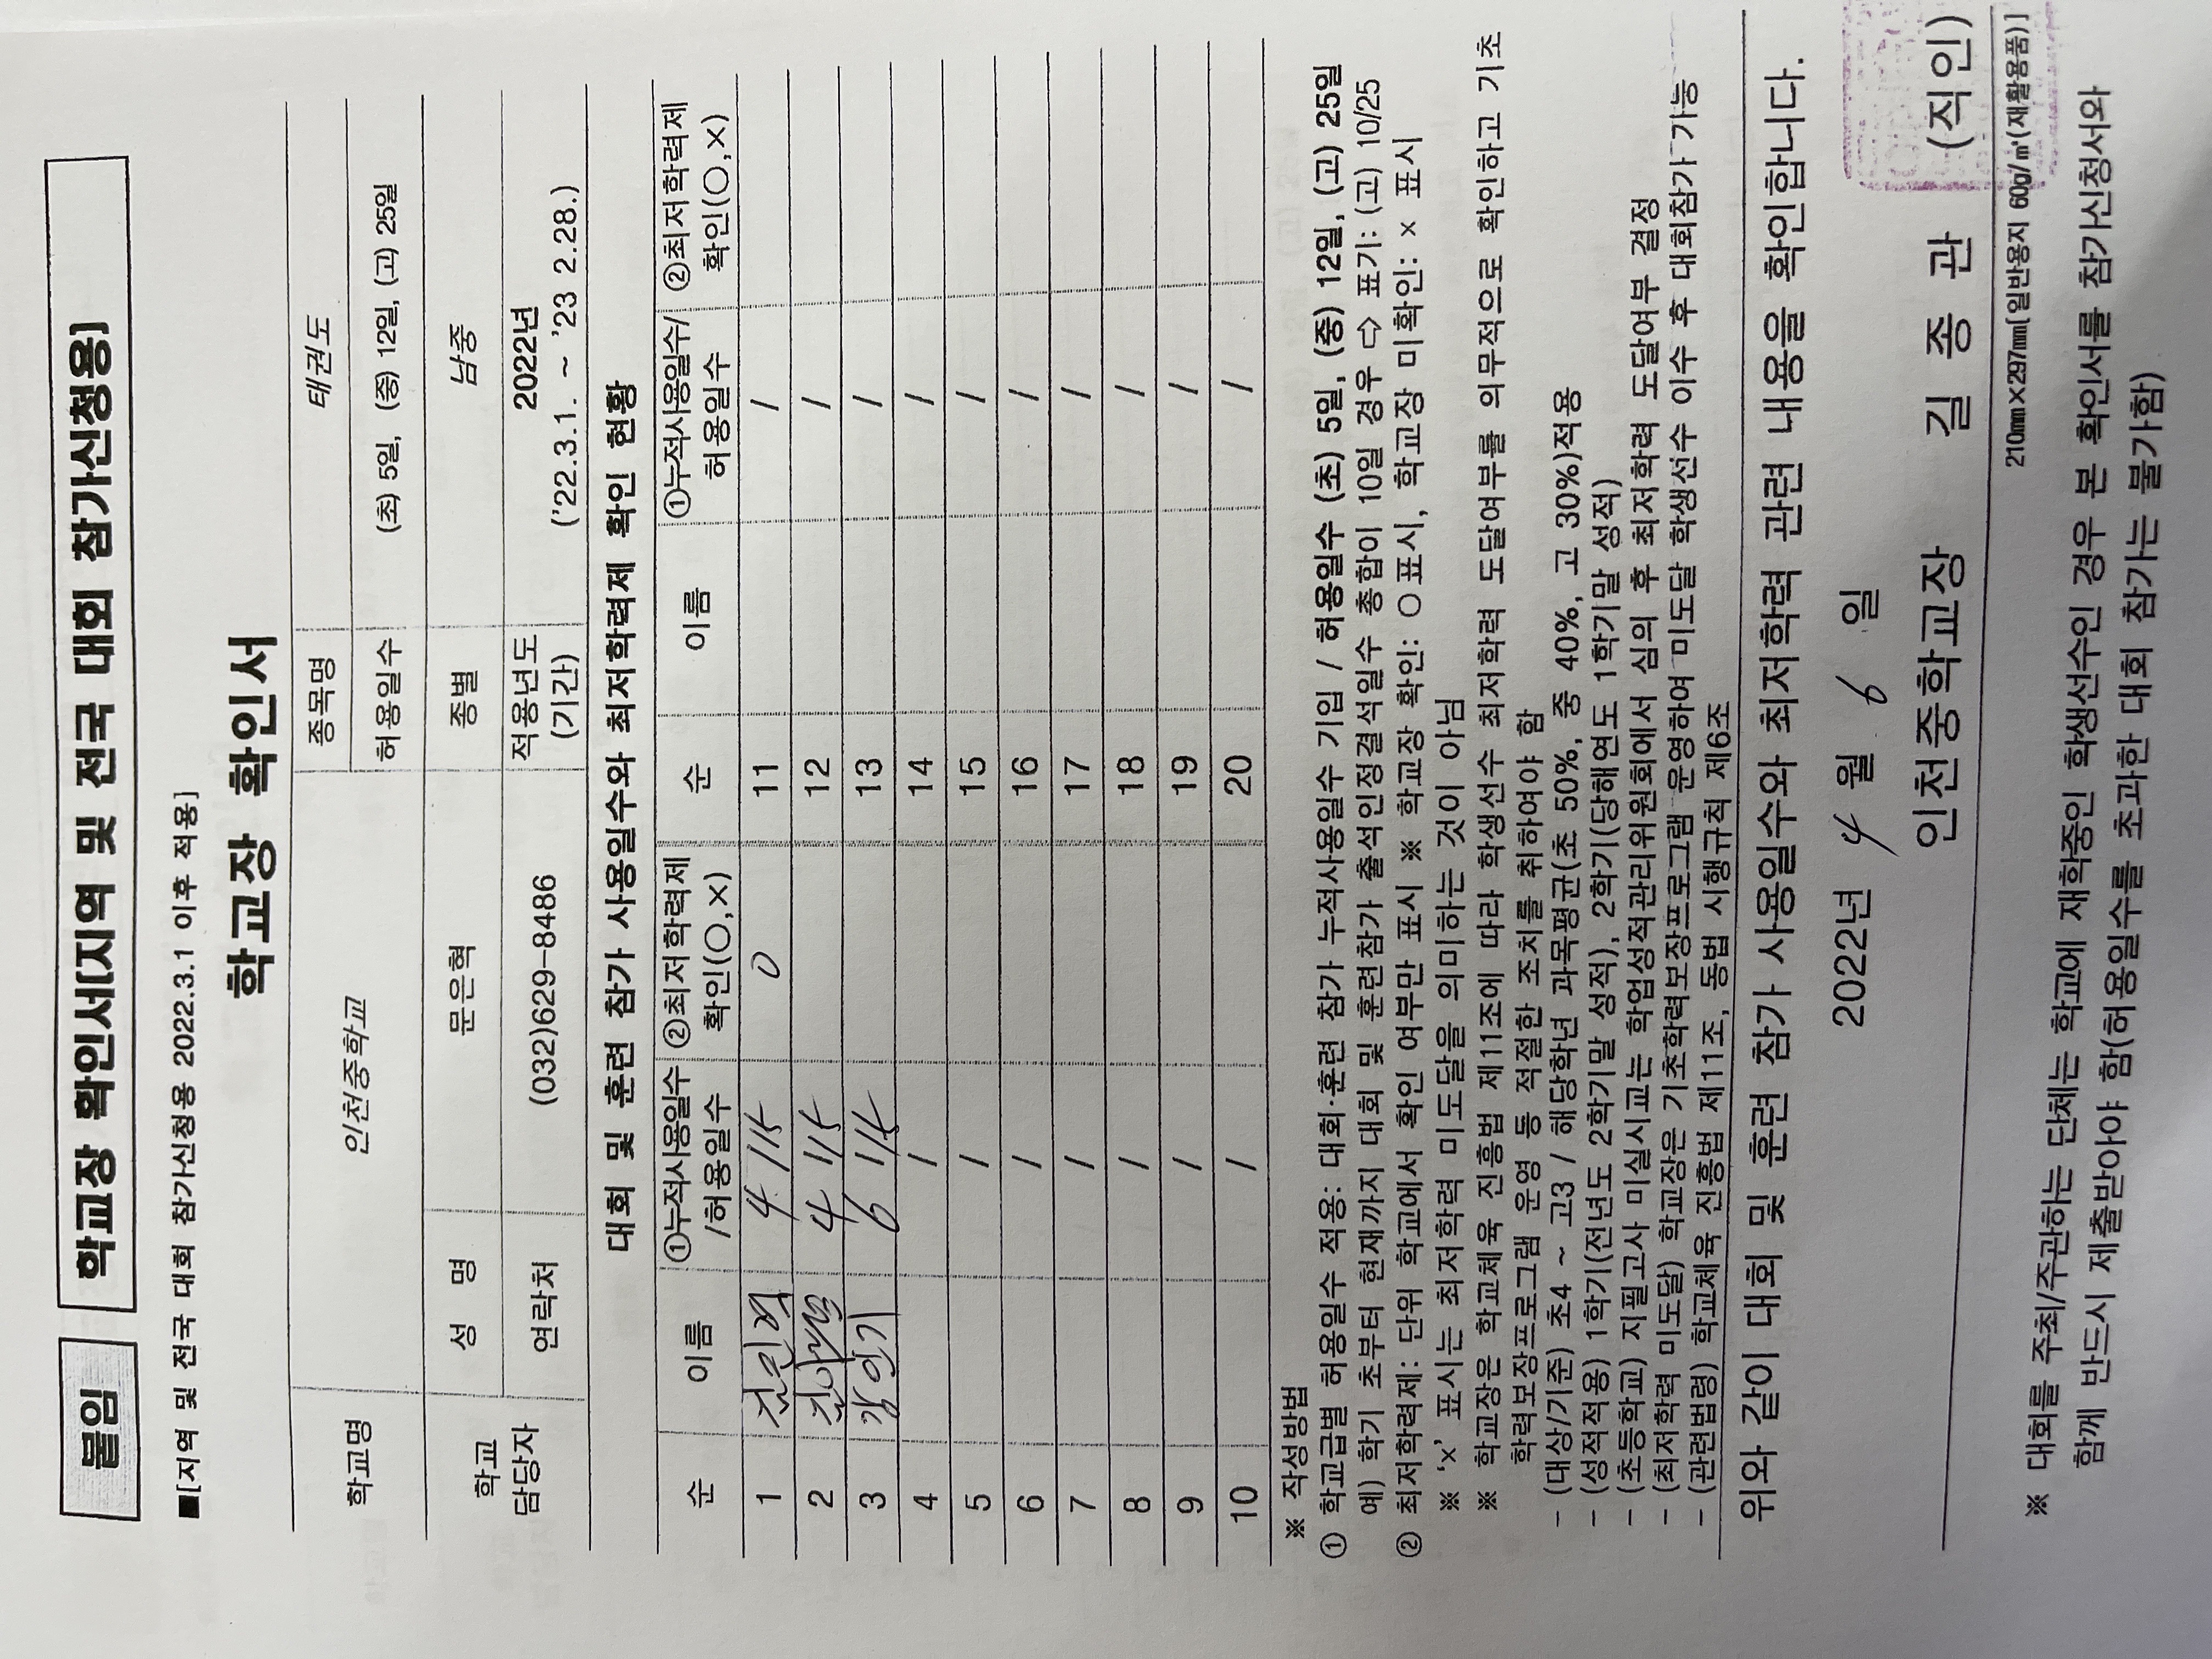 붙임
학교장 확인서[지역 및 전국 대회 참가신청용]
■[지역 및 전국 대회 참가신청용 2022.3.1 이후 적용]
학교장 확인서
학교명 인천중학교 종목명 태권도
허용일수 (초) 5일, (중) 12일, (고) 25일
학교 담당자 성 명 문은혁 종별 남중
연락처 (032)629-8486 적용년도 (기간) 2022년 ('22.3.1. ~ '23 2.28.)
대회 및 훈련 참가 사용일수와 최저학력제 확인 현황
순 이름 ①누적사용일수/허용일수 ②최저학력제 확인(○,×) 순 이름 ①누적사용일수/허용일수 ②최저학력제 확인(○,×)
1 4 / 0 11 /
2 4 / 12 /
3 6 / 13 /
4 / 14 /
5 / 15 /
6 / 16 /
7 / 17 /
8 / 18 /
9 / 19 /
10 / 20 /
※ 작성방법
① 학교급별 허용일수 적용: 대회·훈련 참가 누적사용일수 기입 / 허용일수 (초) 5일, (중) 12일, (고) 25일
예) 학기 초부터 현재까지 대회 및 훈련참가 출석인정결석일수 총합이 10일 경우 ⇨ 표기: (고) 10/25
② 최저학력제: 단위 학교에서 확인 여부만 표시 ※ 학교장 확인: ○ 표시, 학교장 미확인: × 표시
※ 'x' 표시는 최저학력 미도달을 의미하는 것이 아님
※ 학교장은 학교체육 진흥법 제11조에 따라 학생선수 최저학력 도달여부를 의무적으로 확인하고 기초
학력보장프로그램 운영 등 적절한 조치를 취하여야 함
- (대상/기준) 초4 ~ 고3 / 해당학년 과목평균(초 50%, 중 40%, 고 30%)적용
- (성적적용) 1학기(전년도 2학기말 성적), 2학기(당해연도 1학기말 성적)
- (초등학교) 지필고사 미실시교는 학업성적관리위원회에서 심의 후 최저학력 도달여부 결정
- (최저학력 미도달) 학교장은 기초학력보장프로그램 운영하여 미도달 학생선수 이수 후 대회참가 가능
- (관련법령) 학교체육 진흥법 제11조, 동법 시행규칙 제6조
위와 같이 대회 및 훈련 참가 사용일수와 최저학력 관련 내용을 확인합니다.
2022년 4 월 6 일
인천중학교장 길 종 관 (직인)
210㎜×297㎜[일반용지 60g/㎡(재활용품)]
※ 대회를 주최/주관하는 단체는 학교에 재학중인 학생선수인 경우 본 확인서를 참가신청서와
함께 반드시 제출받아야 함(허용일수를 초과한 대회 참가는 불가함)